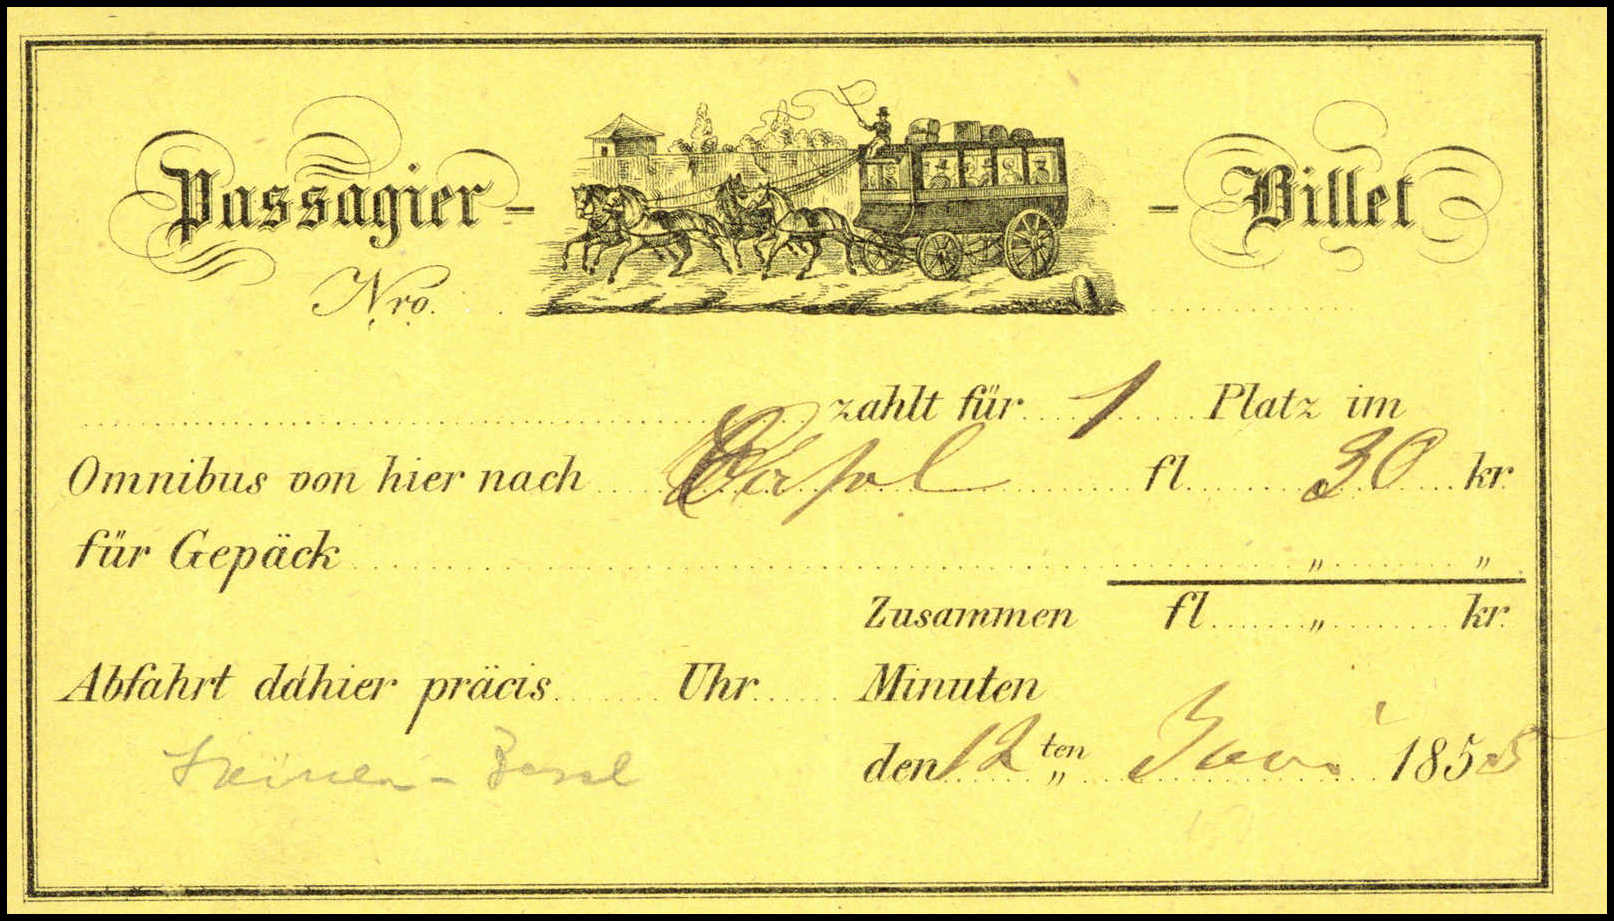 Passagier - - Billet
Nro.
zahlt für 1 Platz im
Omnibus von hier nach Basel fl. 30 kr.
für Gepäck " "
Zusammen fl. " kr.
Abfahrt dahier präcis Uhr Minuten
den 12 ten Juni 1855
Basel